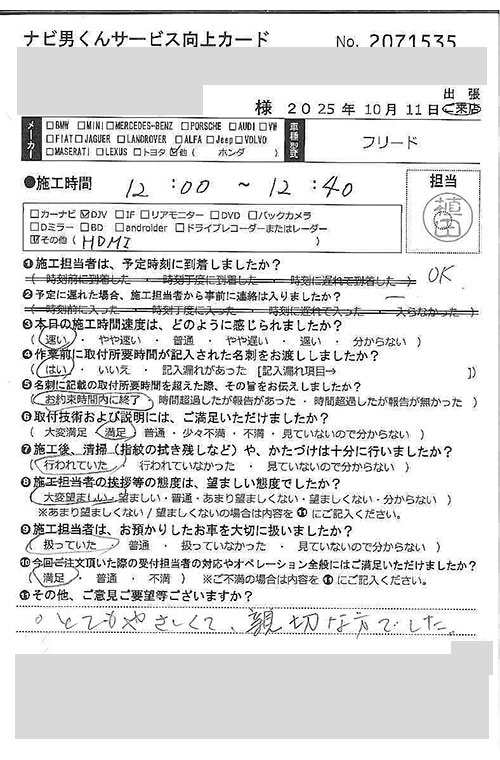 ナビ男くんサービス向上カード No. 2071535
様 2025年10月11日 出張 ご来店
メーカー □BMW □MINI □MERCEDES-BENZ □PORSCHE □AUDI □VW
□FIAT □JAGUER □LANDROVER □ALFA □Jeep □VOLVO
□MASERATI □LEXUS □トヨタ ☑他 ( ホンダ )
車種型式 フリード
●施工時間 12:00 ~ 12:40
担当
□カーナビ ☑DJV □IF □リアモニター □DVD □バックカメラ
□Dミラー □BD □androider □ドライブレコーダーまたはレーダー
☑その他 ( HDMI )
❶施工担当者は、予定時刻に到着しましたか?
( 時刻前に到着した ・ 時刻丁度に到着した ・ 時刻に遅れて到着した ) OK
❷予定に遅れた場合、施工担当者から事前に連絡は入りましたか? ー
( 時刻前に入った ・ 時刻丁度に入った ・ 時刻に遅れて入った ・ 入らなかった )
❸本日の施工時間速度は、どのように感じられましたか?
( 速い ・ やや速い ・ 普通 ・ やや遅い ・ 遅い ・ 分からない )
❹作業前に取付所要時間が記入された名刺をお渡ししましたか?
( はい ・ いいえ ・ 記入漏れがあった [記入漏れ項目→ ] )
❺名刺に記載の取付所要時間を超えた際、その旨をお伝えしましたか?
( お約束時間内に終了 ・ 時間超過したが報告があった ・ 時間超過したが報告が無かった )
❻取付技術および説明には、ご満足いただけましたか?
( 大変満足 ・ 満足 ・ 普通 ・ 少々不満 ・ 不満 ・ 見ていないので分からない )
❼施工後、清掃(指紋の拭き残しなど)や、かたづけは十分に行いましたか?
( 行われていた ・ 行われていなかった ・ 見ていないので分からない )
❽施工担当者の挨拶等の態度は、望ましい態度でしたか?
( 大変望ましい ・ 望ましい ・ 普通 ・ あまり望ましくない ・ 望ましくない ・ 分からない )
※あまり望ましくない / 望ましくないの場合は内容を⓫にご記入ください。
❾施工担当者は、お預かりしたお車を大切に扱いましたか?
( 扱っていた ・ 普通 ・ 扱っていなかった ・ 見ていないので分からない )
❿今回ご注文頂いた際の受付担当者の対応やオペレーション全般にはご満足いただけましたか?
( 満足 ・ 普通 ・ 不満 ) ※ご不満の場合は内容を⓫にご記入ください。
⓫その他、ご意見ご要望等ございますか?
。とてもやさしくて、親切な方でした。